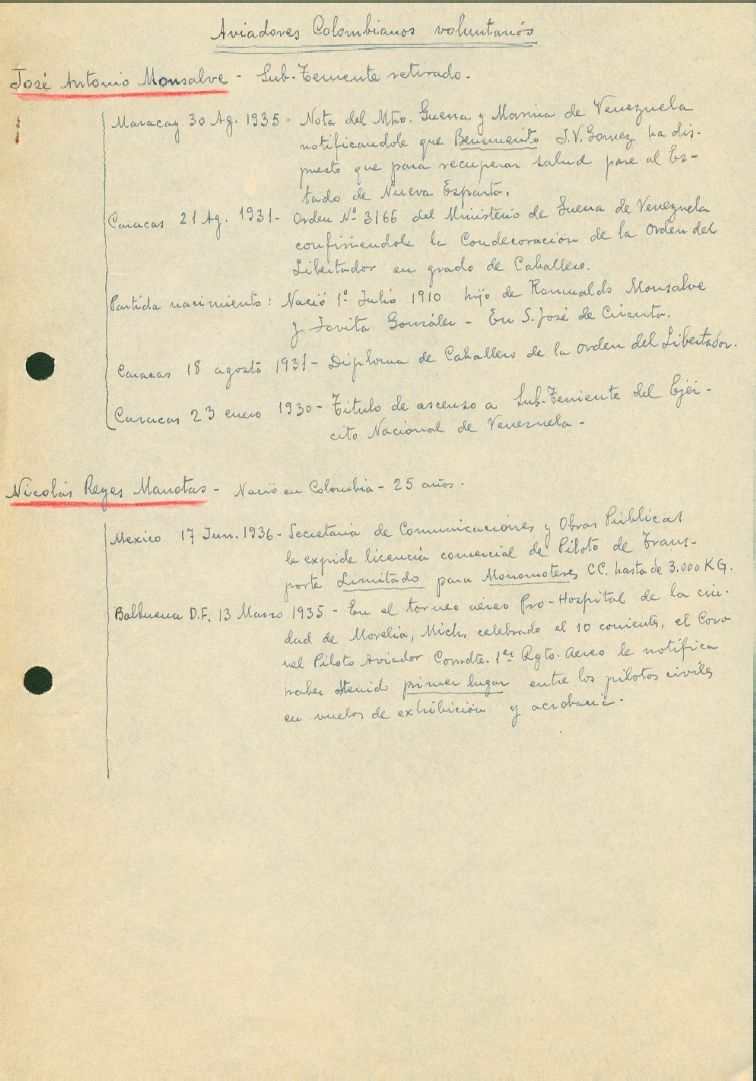 Aviadores Colombianos voluntarios
José Antonio Monsalve - Sub-Teniente retirado.
Maracay 30 Ag. 1935 - Nota del Mtro. Guerra y Marina de Venezuela
notificandole que Benemerito J.V. Gomez ha dis-
puesto que para recuperar salud pase al Es-
tado de Nueva Esparta.
Caracas 21 Ag. 1931 - Orden Nº 3166 del Ministerio de Guerra de Venezuela
confiriendole la Condecoración de la Orden del
Libertador en grado de Caballero.
Partida nacimiento: Nació 1º Julio 1910 hijo de Romualdo Monsalve
y Jovita González - En S. José de Cúcuta.
Caracas 18 agosto 1931 - Diploma de Caballero de la Orden del Libertador.
Caracas 23 enero 1930 - Título de ascenso a Sub-Teniente del Ejér-
cito Nacional de Venezuela -
Nicolás Reyes Manotas - Nació en Colombia - 25 años.
Mexico 17 Jun. 1936 - Secretaria de Comunicaciónes y Obras Públicas
le expide licencia comercial de Piloto de Trans-
porte Limitado para Monomotores CC. hasta de 3.000 KG.
Balbuena D.F. 13 Marzo 1935 - En el torneo aéreo Pro-Hospital de la ciu-
dad de Morelia, Mich, celebrado el 10 corriente, el Coro-
nel Piloto Aviador Comdte. 1er Rgto. Aereo le notifica
haber obtenido primer lugar entre los pilotos civiles
en vuelos de exhibición y acrobacia.